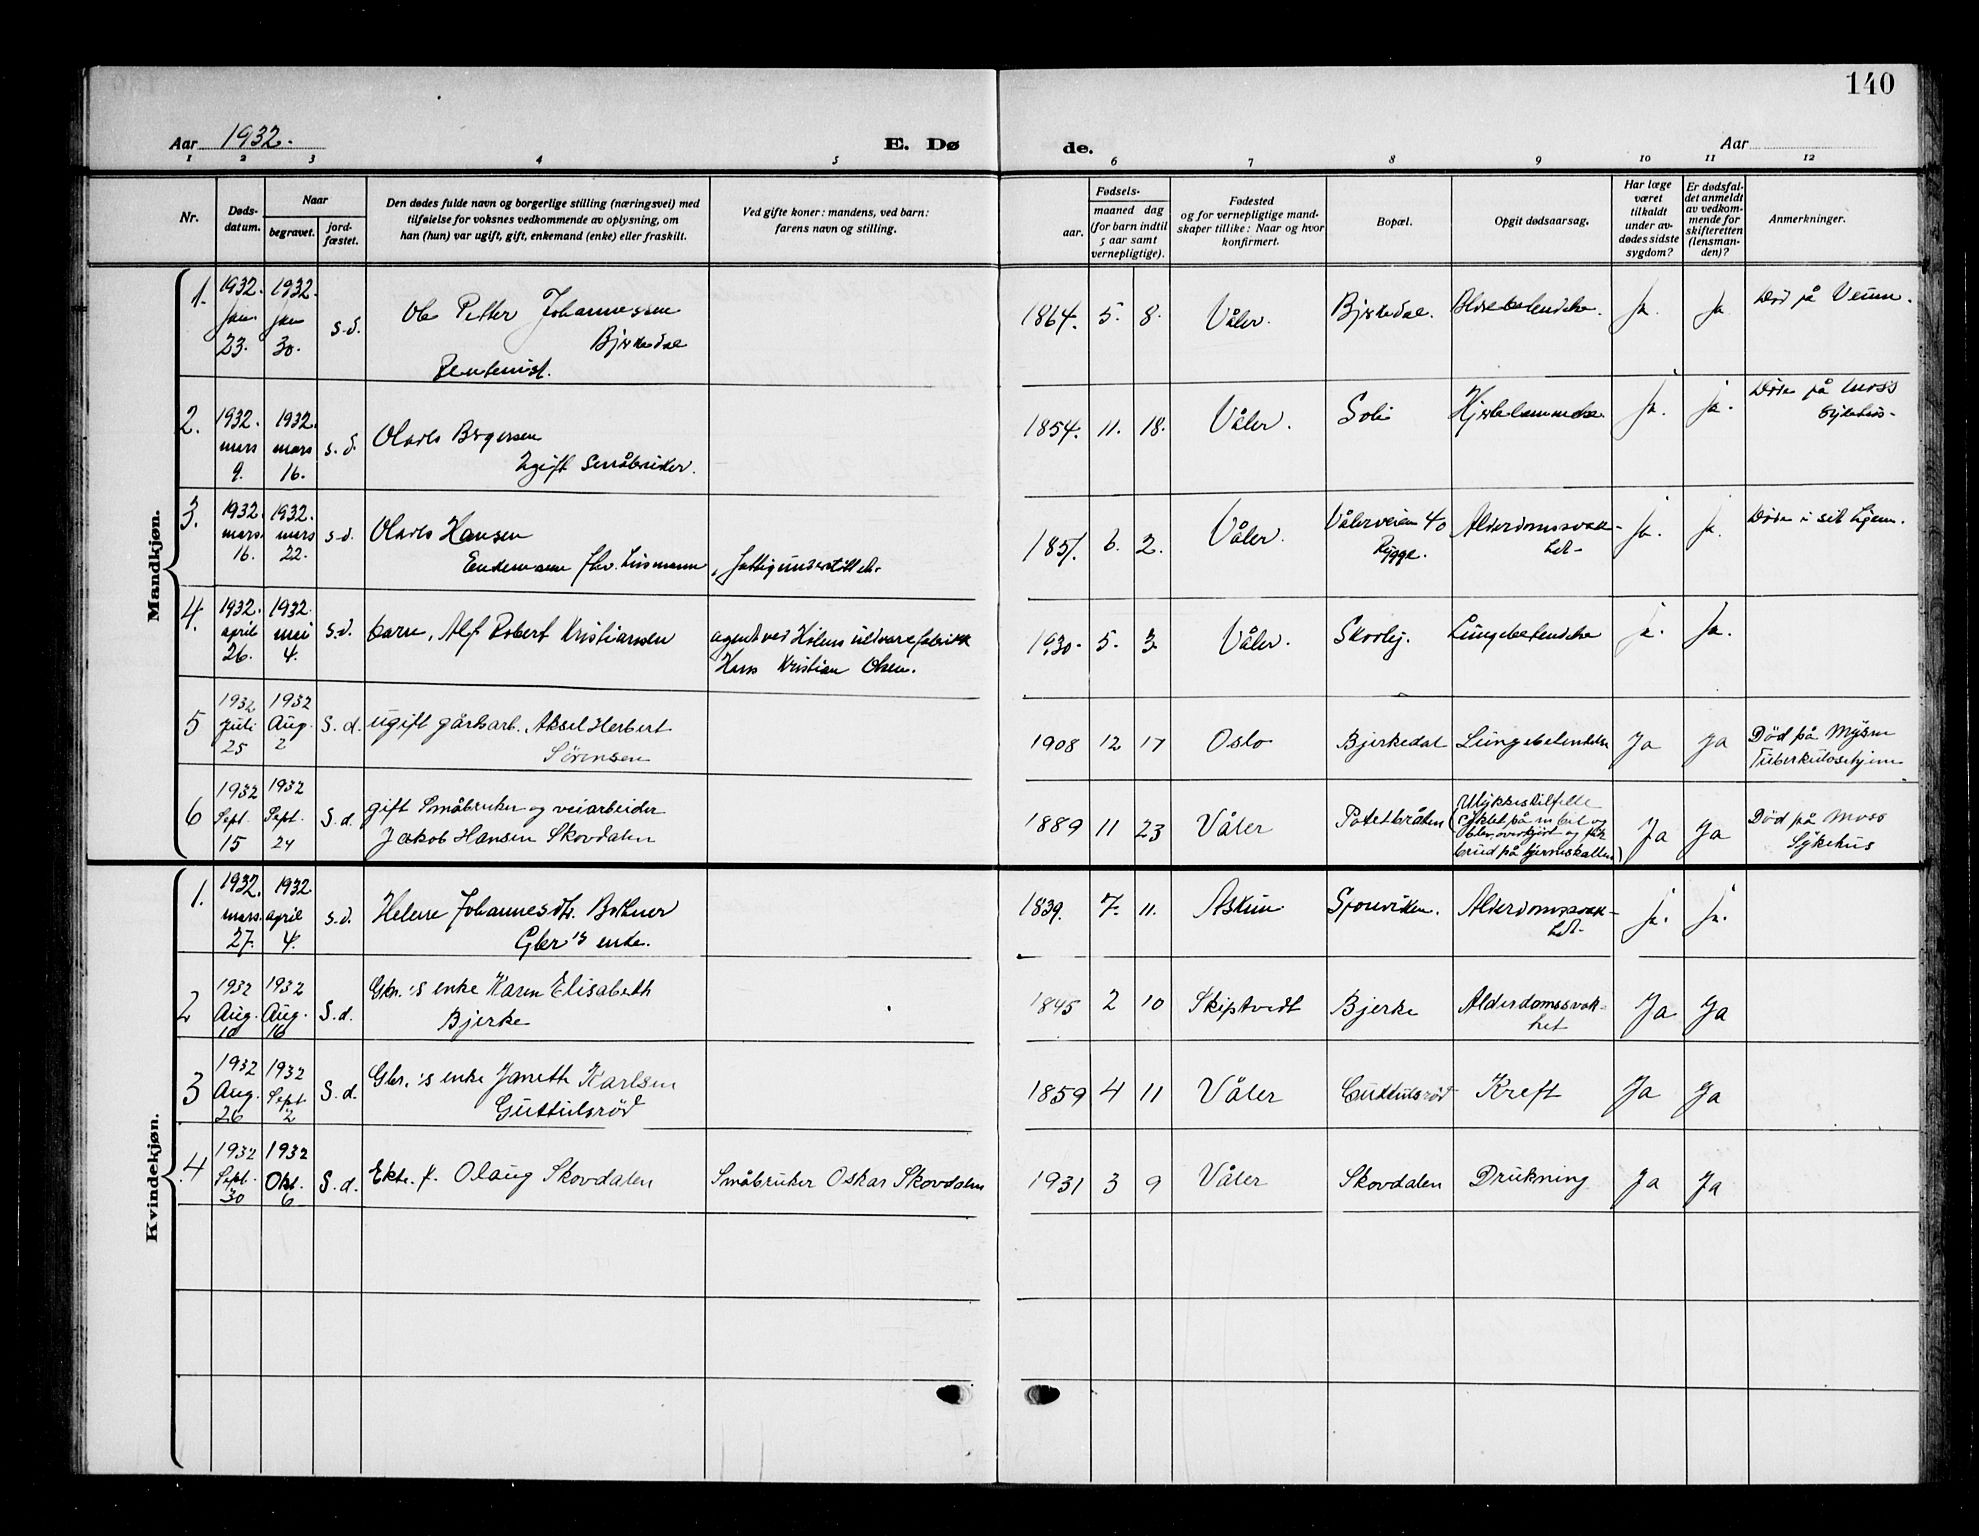 140
Aar 1932. E. Dø de. Aar
1 2 3 4 5 6 7 8 9 10 11 12
Nr.
Døds-
datum.
Naar
begravet.
jord-
fæstet.
Den dødes fulde navn og borgerlige stilling (næringsvei) med
tilføielse for voksnes vedkommende av oplysning, om
han (hun) var ugift, gift, enkemand (enke) eller fraskilt.
Ved gifte koner: mandens, ved barn:
farens navn og stilling.
Fødsels-
aar.
maaned dag
(for barn indtil
5 aar samt
vernepligtige).
Fødested
og for vernepligtige mand-
skaper tillike: Naar og hvor
konfirmert.
Bopæl.
Opgit dødsaarsag.
Har læge
været
tilkaldt
under av-
dødes sidste
sygdom?
Er dødsfal-
det anmeldt
av vedkom-
mende for
skifteretten
(lensman-
den)?
Anmerkninger.
Mandkjøn.
1. 1932. jan 23. 1932. jan 30. s.d. Ole Petter Johannessen
Bjerkedal
Rentenist.
1864. 5. 8. Våler. Bjerkedal. Ja. Ja Död på Veum.
2. 1932. mars 9. 1932. mars 16. s.d. Olavs Borgersen
Ugift Småbruker.
1854. 11. 18. Våler. Soli Hjertelammelse. Ja. Ja. Döde på Moss
Sykehus.
3. 1932. mars. 16. 1932. mars 22. s.d. Olavs Hansen
fhv. , fattigunderstöttet.
6. 2. Våler. Vålerveien 40
Rygge.
Alderdomssvak-
het.
Ja. Ja. Döde i sit hjem.
4. 1932. april 26. 1932. mai 4. s.d. barn, Alf Robert Kristianssen
agent ved Hölens uldvarefabrikk
Hans Kristian Olsen.
1930. 5. 3 Våler. Skovly. Lungebetendelse Ja. Ja.
5 1932 Juli 25 1932 Aug. 2 S.d. ugift gårdsarb. Aksel Herbert
Sörensen
1908 12 17 Oslo Bjerkedal Lungebetendelse Ja Ja Död på Mysen
Tuberkulosehjem
6 1932 Sept. 15 1932 Sept. 24 S.d. gift Småbruker og veiarbeider
Jakob Hansen Skovdalen
1889 11 23 Våler Potetbråten Ulykkestilfelle
(Syklet på en bil og
blev overkjört og fik
brud på hjerneskallen)
Ja Ja Död på Moss
Sykehus
Kvindekjøn.
1. 1932. mars. 27. 1932. april 4. s.d. Helene Johannesdtr. Bothner
Gbr's enke.
1839. 7. 11. Askim Sponviken. Alderdomssvak-
het.
Ja. Ja.
2 1932 Aug. 10 1932 Aug. 16 S.d. Gbr.'s enke Karen Elisabeth
Bjerke
1845 2 10 Skiptvedt Bjerke Alderdomssvak-
het
Ja Ja
3 1932 Aug. 26 1932 Sept. 2 S.d. Gbr.'s enke Janette Karlsen
Guttulsröd
1859 4 11 Våler Guttulsröd Kreft Ja Ja
4 1932 Sept. 30 1932 Okt. 6 S.d. Ekte. f. Olaug Skovdalen
Småbruker Oskar Skovdalen
1931 3 9 Våler Skovdalen Drukning Ja Ja